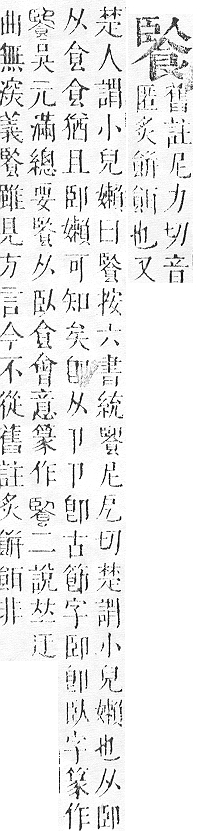 䬶舊註尼力切音
匿炙餅餌也又
楚人謂小兒嬾曰䬶按六書統䬶尼厄切楚謂小兒嬾也从卽
从食食猶且卽嬾可知矣卽从卩卩卽古節字卽卽臥字篆作
䬶吳元滿總要䬶从臥食會意篆作䬶二說𠀤迂
曲無義䬶雖見方言今不從舊註炙餅餌非